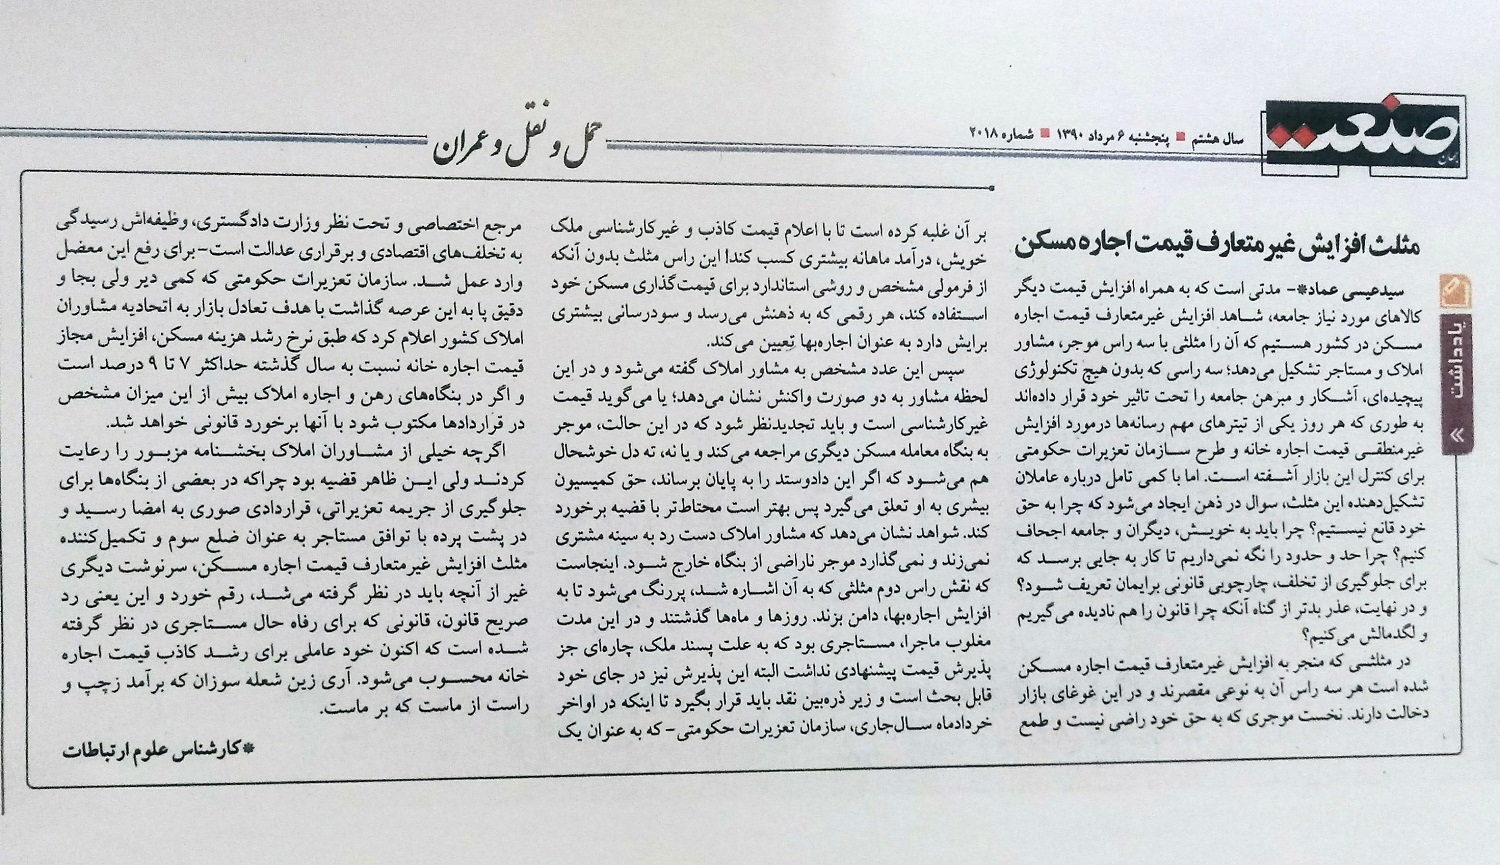 جهان صنعت
سال هشتم ■ پنجشنبه ۶ مرداد ۱۳۹۰ ■ شماره ۲۰۱۸
حمل و نقل و عمران
یادداشت
مثلث افزایش غیرمتعارف قیمت اجاره مسکن
سیدعیسی عماد*- مدتی است که به همراه افزایش قیمت دیگر
کالاهای مورد نیاز جامعه، شاهد افزایش غیرمتعارف قیمت اجاره
مسکن در کشور هستیم که آن را مثلثی با سه راس موجر، مشاور
املاک و مستاجر تشکیل می‌دهد؛ سه راسی که بدون هیچ تکنولوژی
پیچیده‌ای، آشکار و مبرهن جامعه را تحت تاثیر خود قرار داده‌اند
به طوری که هر روز یکی از تیترهای مهم رسانه‌ها درمورد افزایش
غیرمنطقی قیمت اجاره خانه و طرح سازمان تعزیرات حکومتی
برای کنترل این بازار آشفته است. اما با کمی تامل درباره عاملان
تشکیل‌دهنده این مثلث، سوال در ذهن ایجاد می‌شود که چرا به حق
خود قانع نیستیم؟ چرا باید به خویش، دیگران و جامعه اجحاف
کنیم؟ چرا حد و حدود را نگه نمی‌داریم تا کار به جایی برسد که
برای جلوگیری از تخلف، چارچوبی قانونی برایمان تعریف شود؟
و در نهایت، عذر بدتر از گناه آنکه چرا قانون را هم نادیده می‌گیریم
و لگدمالش می‌کنیم؟
در مثلثی که منجر به افزایش غیرمتعارف قیمت اجاره مسکن
شده است هر سه راس آن به نوعی مقصرند و در این غوغای بازار
دخالت دارند. نخست موجری که به حق خود راضی نیست و طمع
بر آن غلبه کرده است تا با اعلام قیمت کاذب و غیرکارشناسی ملک
خویش، درآمد ماهانه بیشتری کسب کند! این راس مثلث بدون آنکه
از فرمولی مشخص و روشی استاندارد برای قیمت‌گذاری مسکن خود
استفاده کند، هر رقمی که به ذهنش می‌رسد و سودرسانی بیشتری
برایش دارد به عنوان اجاره‌بها تعیین می‌کند.
سپس این عدد مشخص به مشاور املاک گفته می‌شود و در این
لحظه مشاور به دو صورت واکنش نشان می‌دهد؛ یا می‌گوید قیمت
غیرکارشناسی است و باید تجدیدنظر شود که در این حالت، موجر
به بنگاه معامله مسکن دیگری مراجعه می‌کند و یا نه، ته دل خوشحال
هم می‌شود که اگر این دادوستد را به پایان برساند، حق کمیسیون
بیشری به او تعلق می‌گیرد پس بهتر است محتاط‌تر با قضیه برخورد
کند. شواهد نشان می‌دهد که مشاور املاک دست رد به سینه مشتری
نمی‌زند و نمی‌گذارد موجر ناراضی از بنگاه خارج شود. اینجاست
که نقش راس دوم مثلثی که به آن اشاره شد، پررنگ می‌شود تا به
افزایش اجاره‌بها، دامن بزند. روزها و ماه‌ها گذشتند و در این مدت
مغلوب ماجرا، مستاجری بود که به علت پسند ملک، چاره‌ای جز
پذیرش قیمت پیشنهادی نداشت البته این پذیرش نیز در جای خود
قابل بحث است و زیر ذره‌بین نقد باید قرار بگیرد تا اینکه در اواخر
خردادماه سال‌جاری، سازمان تعزیرات حکومتی-که به عنوان یک
مرجع اختصاصی و تحت نظر وزارت دادگستری، وظیفه‌اش رسیدگی
به تخلف‌های اقتصادی و برقراری عدالت است-برای رفع این معضل
وارد عمل شد. سازمان تعزیرات حکومتی که کمی دیر ولی بجا و
دقیق پا به این عرصه گذاشت با هدف تعادل بازار به اتحادیه مشاوران
املاک کشور اعلام کرد که طبق نرخ رشد هزینه مسکن، افزایش مجاز
قیمت اجاره خانه نسبت به سال گذشته حداکثر ۷ تا ۹ درصد است
و اگر در بنگاه‌های رهن و اجاره املاک بیش از این میزان مشخص
در قراردادها مکتوب شود با آنها برخورد قانونی خواهد شد.
اگرچه خیلی از مشاوران املاک بخشنامه مزبور را رعایت
کردند ولی این ظاهر قضیه بود چراکه در بعضی از بنگاه‌ها برای
جلوگیری از جریمه تعزیراتی، قراردادی صوری به امضا رسید و
در پشت پرده با توافق مستاجر به عنوان ضلع سوم و تکمیل‌کننده
مثلث افزایش غیرمتعارف قیمت اجاره مسکن، سرنوشت دیگری
غیر از آنچه باید در نظر گرفته می‌شد، رقم خورد و این یعنی رد
صریح قانون، قانونی که برای رفاه حال مستاجری در نظر گرفته
شده است که اکنون خود عاملی برای رشد کاذب قیمت اجاره
خانه محسوب می‌شود. آری زین شعله سوزان که برآمد زچپ و
راست از ماست که بر ماست.
*کارشناس علوم ارتباطات